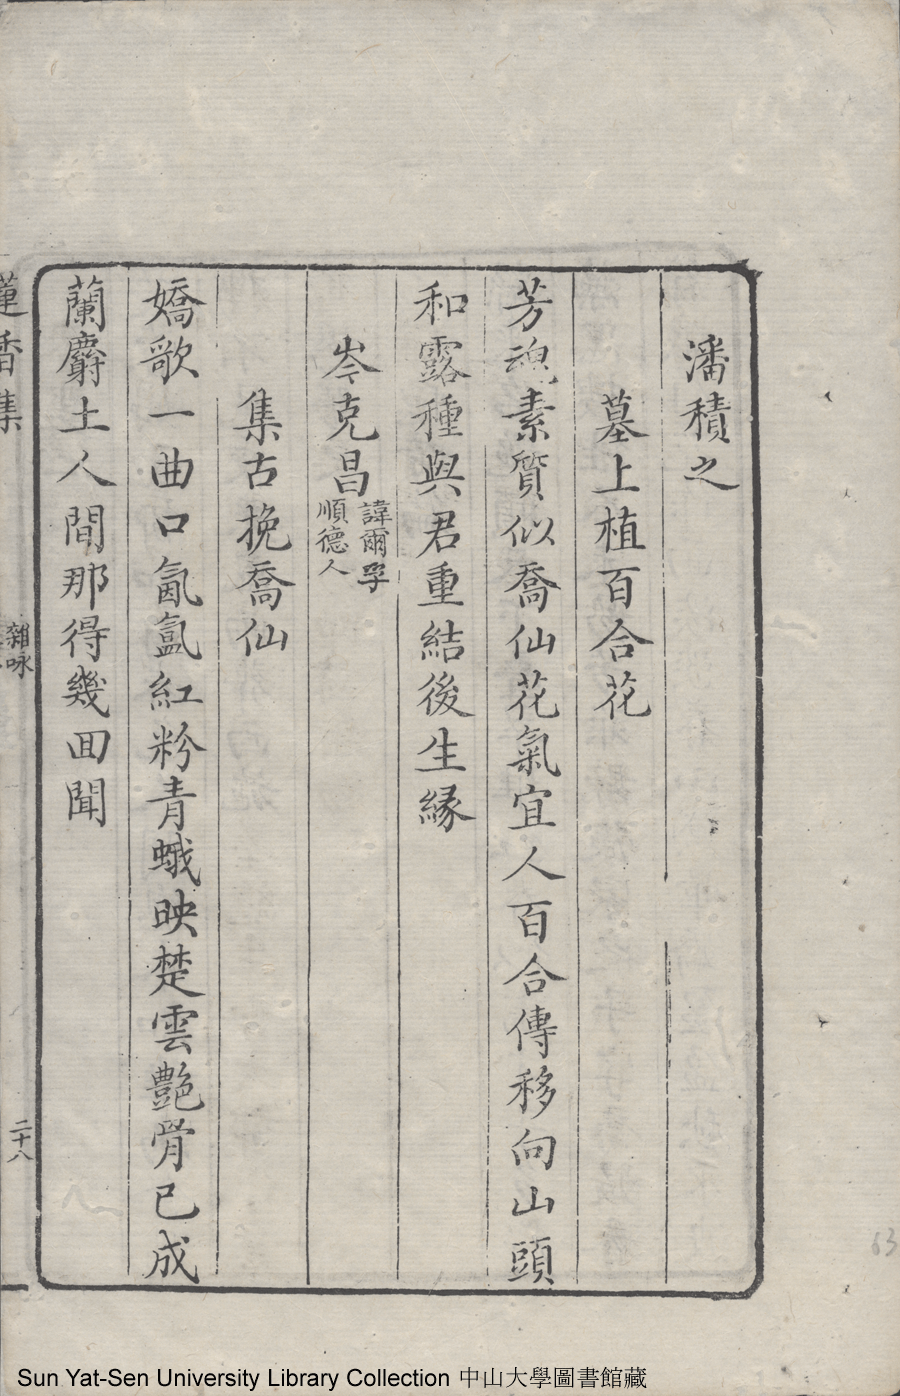 潘積之
墓上植百合花
芳魂素質似喬仙花氣宜人百合傳移向山頭
和露種與君重結後生緣
岑克昌
諱爾孚
順德人
集古挽喬仙
嬌歌一曲口氤氳紅粉青蛾映楚雲艶骨已成
蘭麝土人間那得幾囬聞
蓮香集
雜咏
二十八
63
Sun Yat-Sen University Library Collection 中山大學圖書館藏